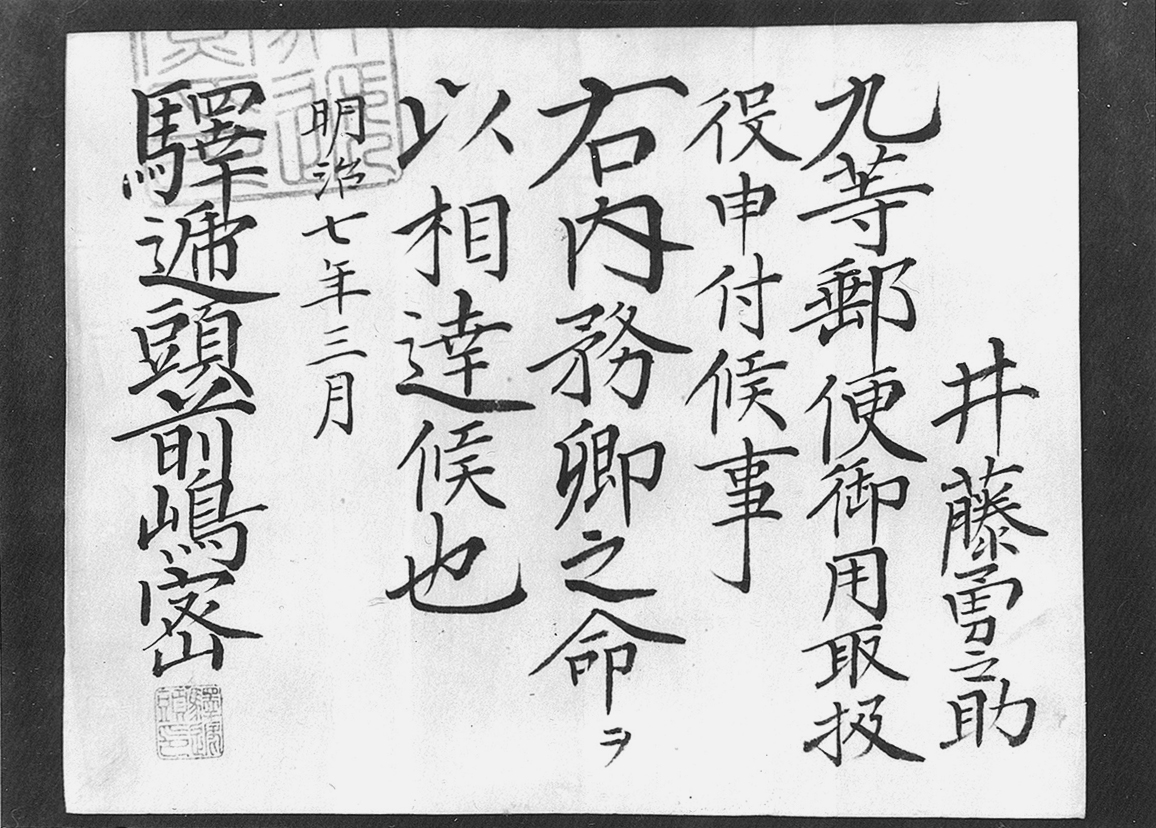 井藤勇之助
九等郵便御用取扱
役申付候事
右内務卿之命ヲ
以相達候也
明治七年三月
驛遞頭前嶋密
驛遞
頭印